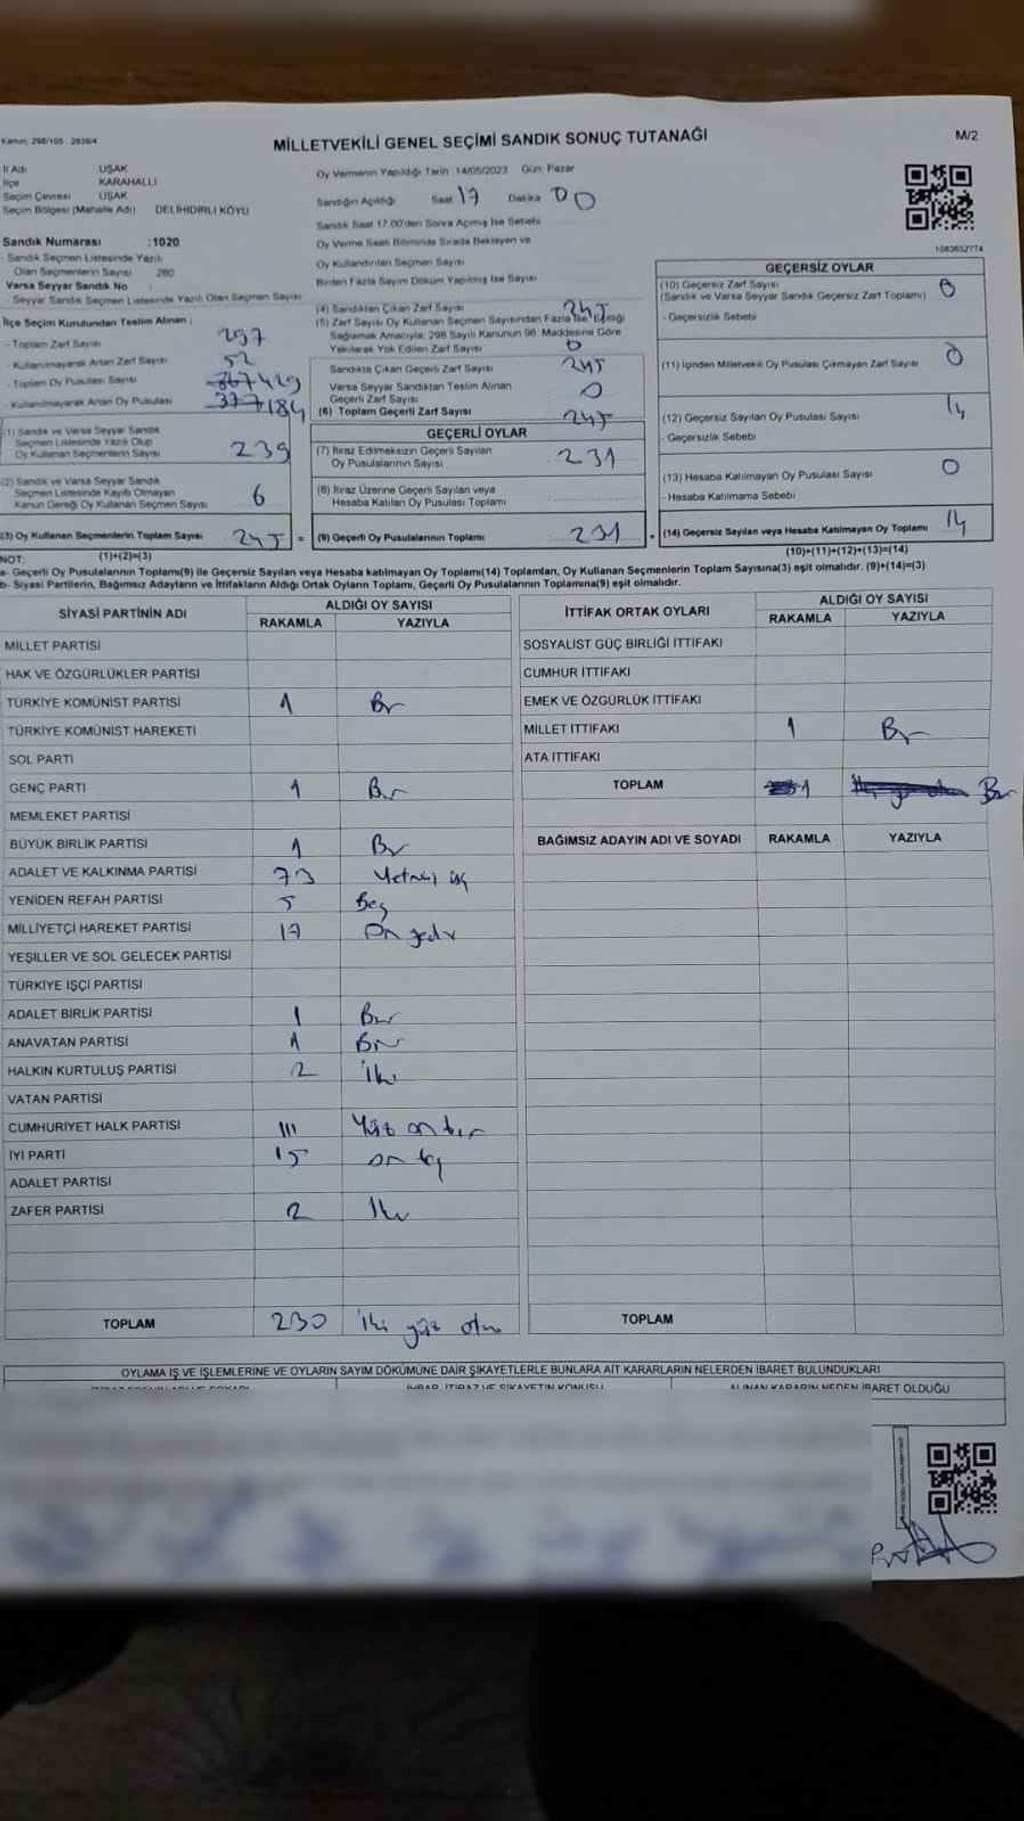 Kanun: 298/105 : 2839/4
MİLLETVEKİLİ GENEL SEÇİMİ SANDIK SONUÇ TUTANAĞI
M/2
İl Adı : UŞAK
İlçe : KARAHALLI
Seçim Çevresi : UŞAK
Seçim Bölgesi (Mahalle Adı) : DELİHIDIRLI KÖYÜ
Sandık Numarası :1020
- Sandık Seçmen Listesinde Yazılı
Olan Seçmenlerin Sayısı : 280
Varsa Seyyar Sandık No
- Seyyar Sandık Seçmen Listesinde Yazılı Olan Seçmen Sayısı
İlçe Seçim Kurulundan Teslim Alınan :
- Toplam Zarf Sayısı 297
- Kullanılmayarak Artan Zarf Sayısı 52
- Toplam Oy Pusulası Sayısı 429
- Kullanılmayarak Artan Oy Pusulası 184
(1) Sandık ve Varsa Seyyar Sandık
Seçmen Listesinde Yazılı Olup
Oy Kullanan Seçmenlerin Sayısı 239
(2) Sandık ve Varsa Seyyar Sandık
Seçmen Listesinde Kayıtlı Olmayan
Kanun Gereği Oy Kullanan Seçmen Sayısı 6
(3) Oy Kullanan Seçmenlerin Toplam Sayısı 245 =
(1)+(2)=(3)
Oy Vermenin Yapıldığı Tarih : 14/05/2023 Gün: Pazar
Sandığın Açıldığı Saat 17 Dakika 00
Sandık Saat 17:00'den Sonra Açılmış İse Sebebi
Oy Verme Saati Bitiminde Sırada Bekleyen ve
Oy Kullandırılan Seçmen Sayısı
Birden Fazla Sayım Döküm Yapılmış İse Sayısı
(4) Sandıktan Çıkan Zarf Sayısı 245
(5) Zarf Sayısı Oy Kullanan Seçmen Sayısından Fazla İse Eşitliği
Sağlamak Amacıyla; 298 Sayılı Kanunun 98. Maddesine Göre
Yakılarak Yok Edilen Zarf Sayısı 0
Sandıkta Çıkan Geçerli Zarf Sayısı 245
Varsa Seyyar Sandıktan Teslim Alınan
Geçerli Zarf Sayısı 0
(6) Toplam Geçerli Zarf Sayısı 245
GEÇERLİ OYLAR
(7) İtiraz Edilmeksizin Geçerli Sayılan
Oy Pusulalarının Sayısı 231
(8) İtiraz Üzerine Geçerli Sayılan veya
Hesaba Katılan Oy Pusulası Toplamı
(9) Geçerli Oy Pusulalarının Toplamı 231 +
1083632774
GEÇERSİZ OYLAR
(10) Geçersiz Zarf Sayısı 0
(Sandık ve Varsa Seyyar Sandık Geçersiz Zarf Toplamı)
- Geçersizlik Sebebi
(11) İçinden Milletvekili Oy Pusulası Çıkmayan Zarf Sayısı 0
(12) Geçersiz Sayılan Oy Pusulası Sayısı 14
- Geçersizlik Sebebi
(13) Hesaba Katılmayan Oy Pusulası Sayısı 0
- Hesaba Katılmama Sebebi
(14) Geçersiz Sayılan veya Hesaba Katılmayan Oy Toplamı 14
(10)+(11)+(12)+(13)=(14)
NOT:
a- Geçerli Oy Pusulalarının Toplamı(9) ile Geçersiz Sayılan veya Hesaba katılmayan Oy Toplamı(14) Toplamları, Oy Kullanan Seçmenlerin Toplam Sayısına(3) eşit olmalıdır. (9)+(14)=(3)
b- Siyasi Partilerin, Bağımsız Adayların ve İttifakların Aldığı Ortak Oyların Toplamı, Geçerli Oy Pusulalarının Toplamına(9) eşit olmalıdır.
SİYASİ PARTİNİN ADI ALDIĞI OY SAYISI
RAKAMLA YAZIYLA
MİLLET PARTİSİ
HAK VE ÖZGÜRLÜKLER PARTİSİ
TÜRKİYE KOMÜNİST PARTİSİ 1 Bir
TÜRKİYE KOMÜNİST HAREKETİ
SOL PARTİ
GENÇ PARTİ 1 Bir
MEMLEKET PARTİSİ
BÜYÜK BİRLİK PARTİSİ 1 Bir
ADALET VE KALKINMA PARTİSİ 73 Yetmiş üç
YENİDEN REFAH PARTİSİ 5 Beş
MİLLİYETÇİ HAREKET PARTİSİ 17 On yedi
YEŞİLLER VE SOL GELECEK PARTİSİ
TÜRKİYE İŞÇİ PARTİSİ
ADALET BİRLİK PARTİSİ 1 Bir
ANAVATAN PARTİSİ 1 Bir
HALKIN KURTULUŞ PARTİSİ 2 İki
VATAN PARTİSİ
CUMHURİYET HALK PARTİSİ 111 Yüz on bir
İYİ PARTİ 15 on beş
ADALET PARTİSİ
ZAFER PARTİSİ 2 İki
TOPLAM 230 İki yüz otuz
İTTİFAK ORTAK OYLARI ALDIĞI OY SAYISI
RAKAMLA YAZIYLA
SOSYALİST GÜÇ BİRLİĞİ İTTİFAKI
CUMHUR İTTİFAKI
EMEK VE ÖZGÜRLÜK İTTİFAKI
MİLLET İTTİFAKI 1 Bir
ATA İTTİFAKI
TOPLAM 1 Bir
BAĞIMSIZ ADAYIN ADI VE SOYADI RAKAMLA YAZIYLA
TOPLAM
OYLAMA İŞ VE İŞLEMLERİNE VE OYLARIN SAYIM DÖKÜMÜNE DAİR ŞİKAYETLERLE BUNLARA AİT KARARLARIN NELERDEN İBARET BULUNDUKLARI
İHBAR, İTİRAZ VE ŞİKAYETİN KONUSU ALINAN KARARIN NEDEN İBARET OLDUĞU